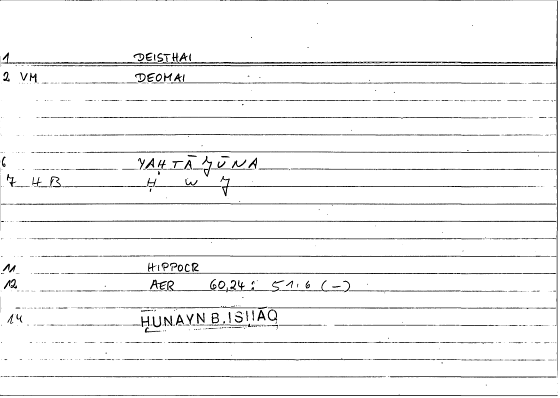 1 DEISTHAI
2 VM DEOMAI
6 YAḤTĀJŪNA
7 HB Ḥ W J
11 HIPPOCR
12 AER 60,24: 51,6 (-)
14 ḤUNAYN B.ISḤĀQ